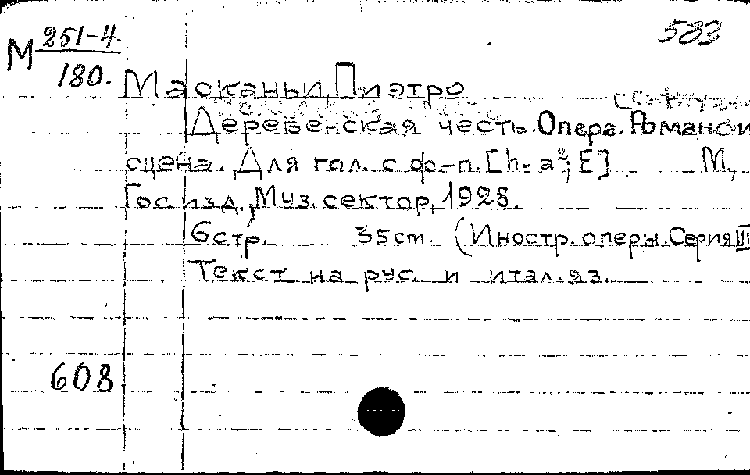 583
М 251-4
180.
Масканьи, Пиэтро
Деревенская честь. Опера. Романс и
сцена. Для гол. с ф-п. [h-a²; E] М,
Гос. изд., Муз. сектор, 1928.
6 стр. 35 cm. (Иностр. оперы. Серия III
Текст на рус. и итал. яз.
608